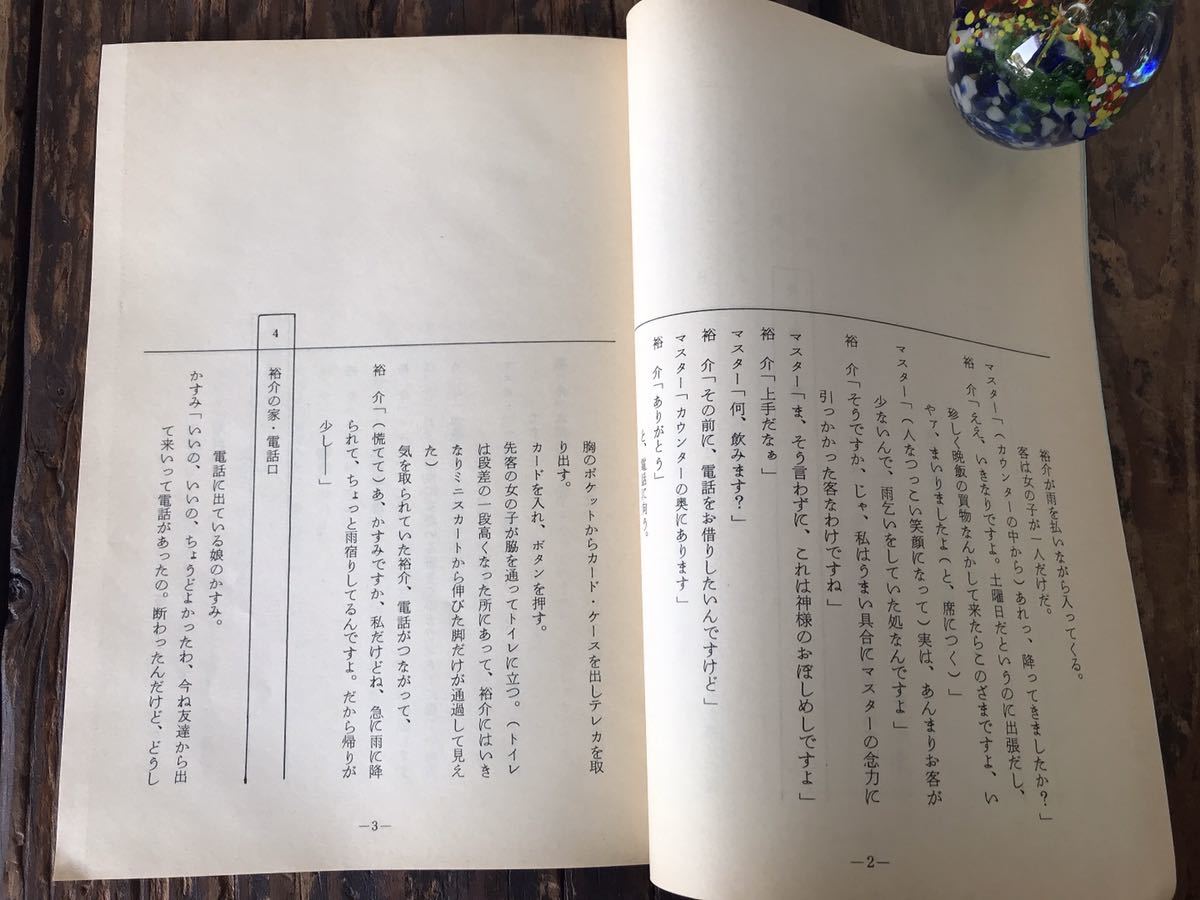 裕介が雨を払いながら入ってくる。
客は女の子が一人だけだ。
マスター「(カウンターの中から)あれっ、降ってきましたか?」
裕　介「ええ、いきなりですよ。土曜日だというのに出張だし、
珍しく晩飯の買物なんかして来たらこのざまですよ、い
やァ、まいりましたよ(と、席につく)」
マスター「(人なつっこい笑顔になって)実は、あんまりお客が
少ないんで、雨乞いをしていた処なんですよ」
裕　介「そうですか、じゃ、私はうまい具合にマスターの念力に
引っかかった客なわけですね」
マスター「ま、そう言わずに、これは神様のおぼしめしですよ」
裕　介「上手だなぁ」
マスター「何、飲みます?」
裕　介「その前に、電話をお借りしたいんですけど」
マスター「カウンターの奥にあります」
裕　介「ありがとう」
と、電話に向う。
—2—
胸のポケットからカード・ケースを出しテレカを取
り出す。
カードを入れ、ボタンを押す。
先客の女の子が脇を通ってトイレに立つ。(トイレ
は段差の一段高くなった所にあって、裕介にはいき
なりミニスカートから伸びた脚だけが通過して見え
た)
気を取られていた裕介、電話がつながって、
裕　介「(慌てて)あ、かすみですか、私だけどね、急に雨に降
られて、ちょっと雨宿りしてるんですよ。だから帰りが
少し――」
4　裕介の家・電話口
電話に出ている娘のかすみ。
かすみ「いいの、いいの、ちょうどよかったわ、今ね友達から出
て来いって電話があったの。断わったんだけど、どうし
—3—